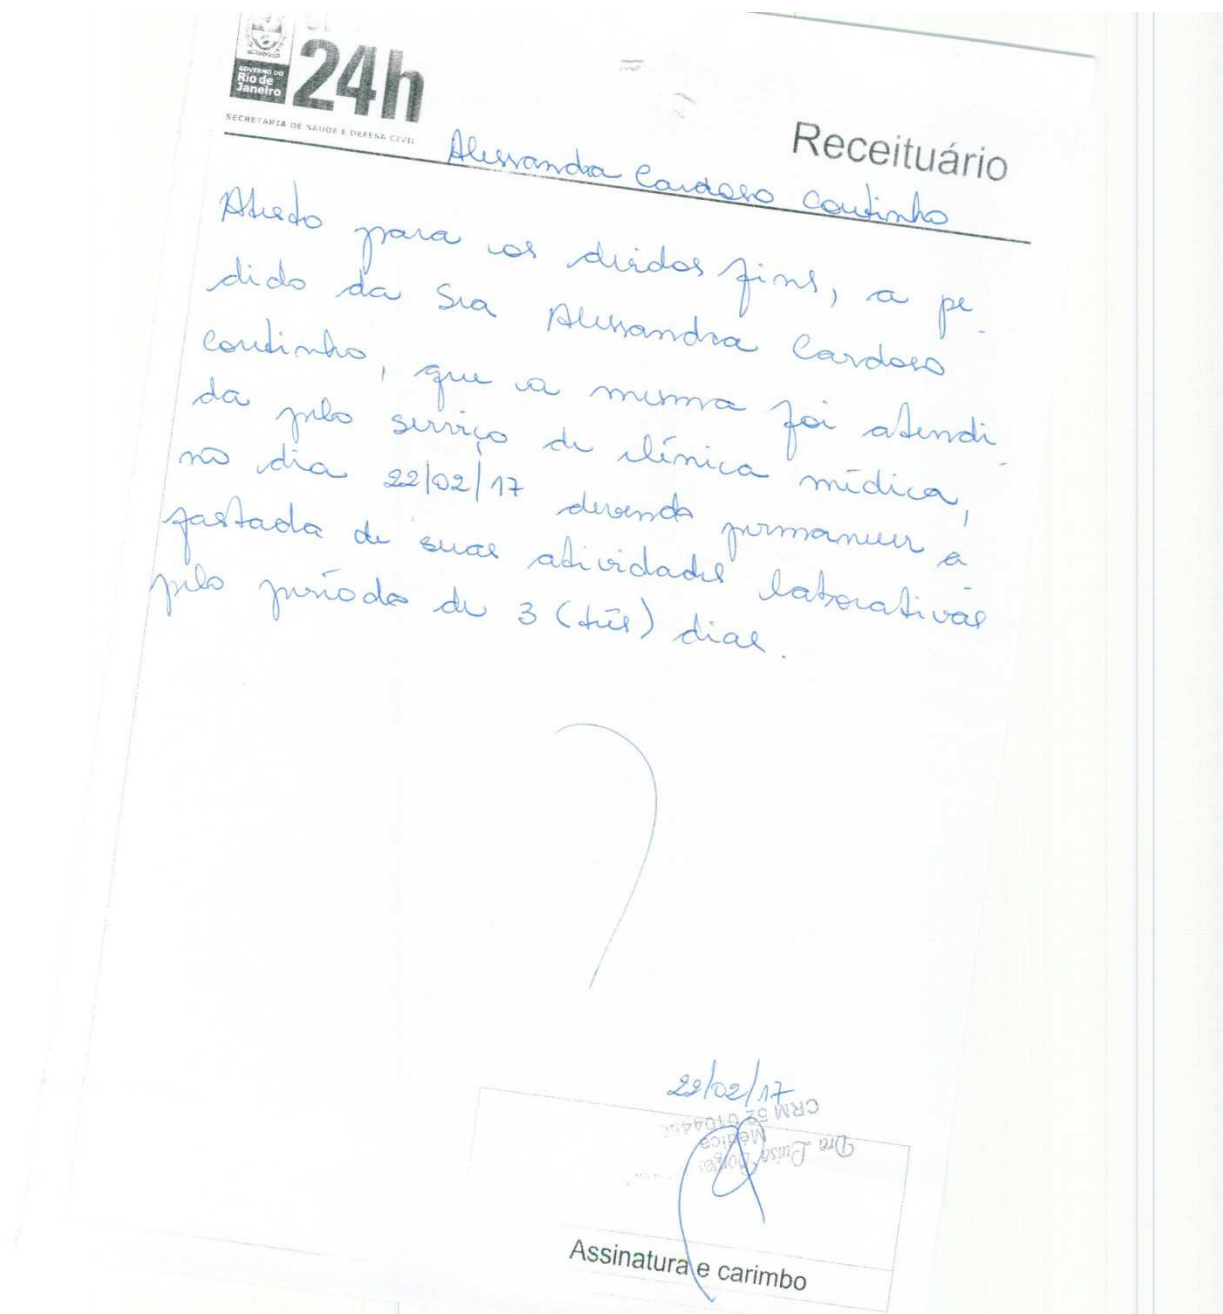 GOVERNO DO
Rio de
Janeiro
24h
SECRETARIA DE SAÚDE E DEFESA CIVIL
Receituário
Alessandra Cardoso Coutinho
Atesto para os devidos fins, a pe-
dido da Sra Alessandra Cardoso
Coutinho, que a mesma foi atendi-
da pelo serviço de clínica médica,
no dia 22/02/17 devendo permanecer a-
fastada de suas atividades laborativas
pelo período de 3 (três) dias.
22/02/17
Dra Luisa Borges
Médica
CRM 52
Assinatura e carimbo